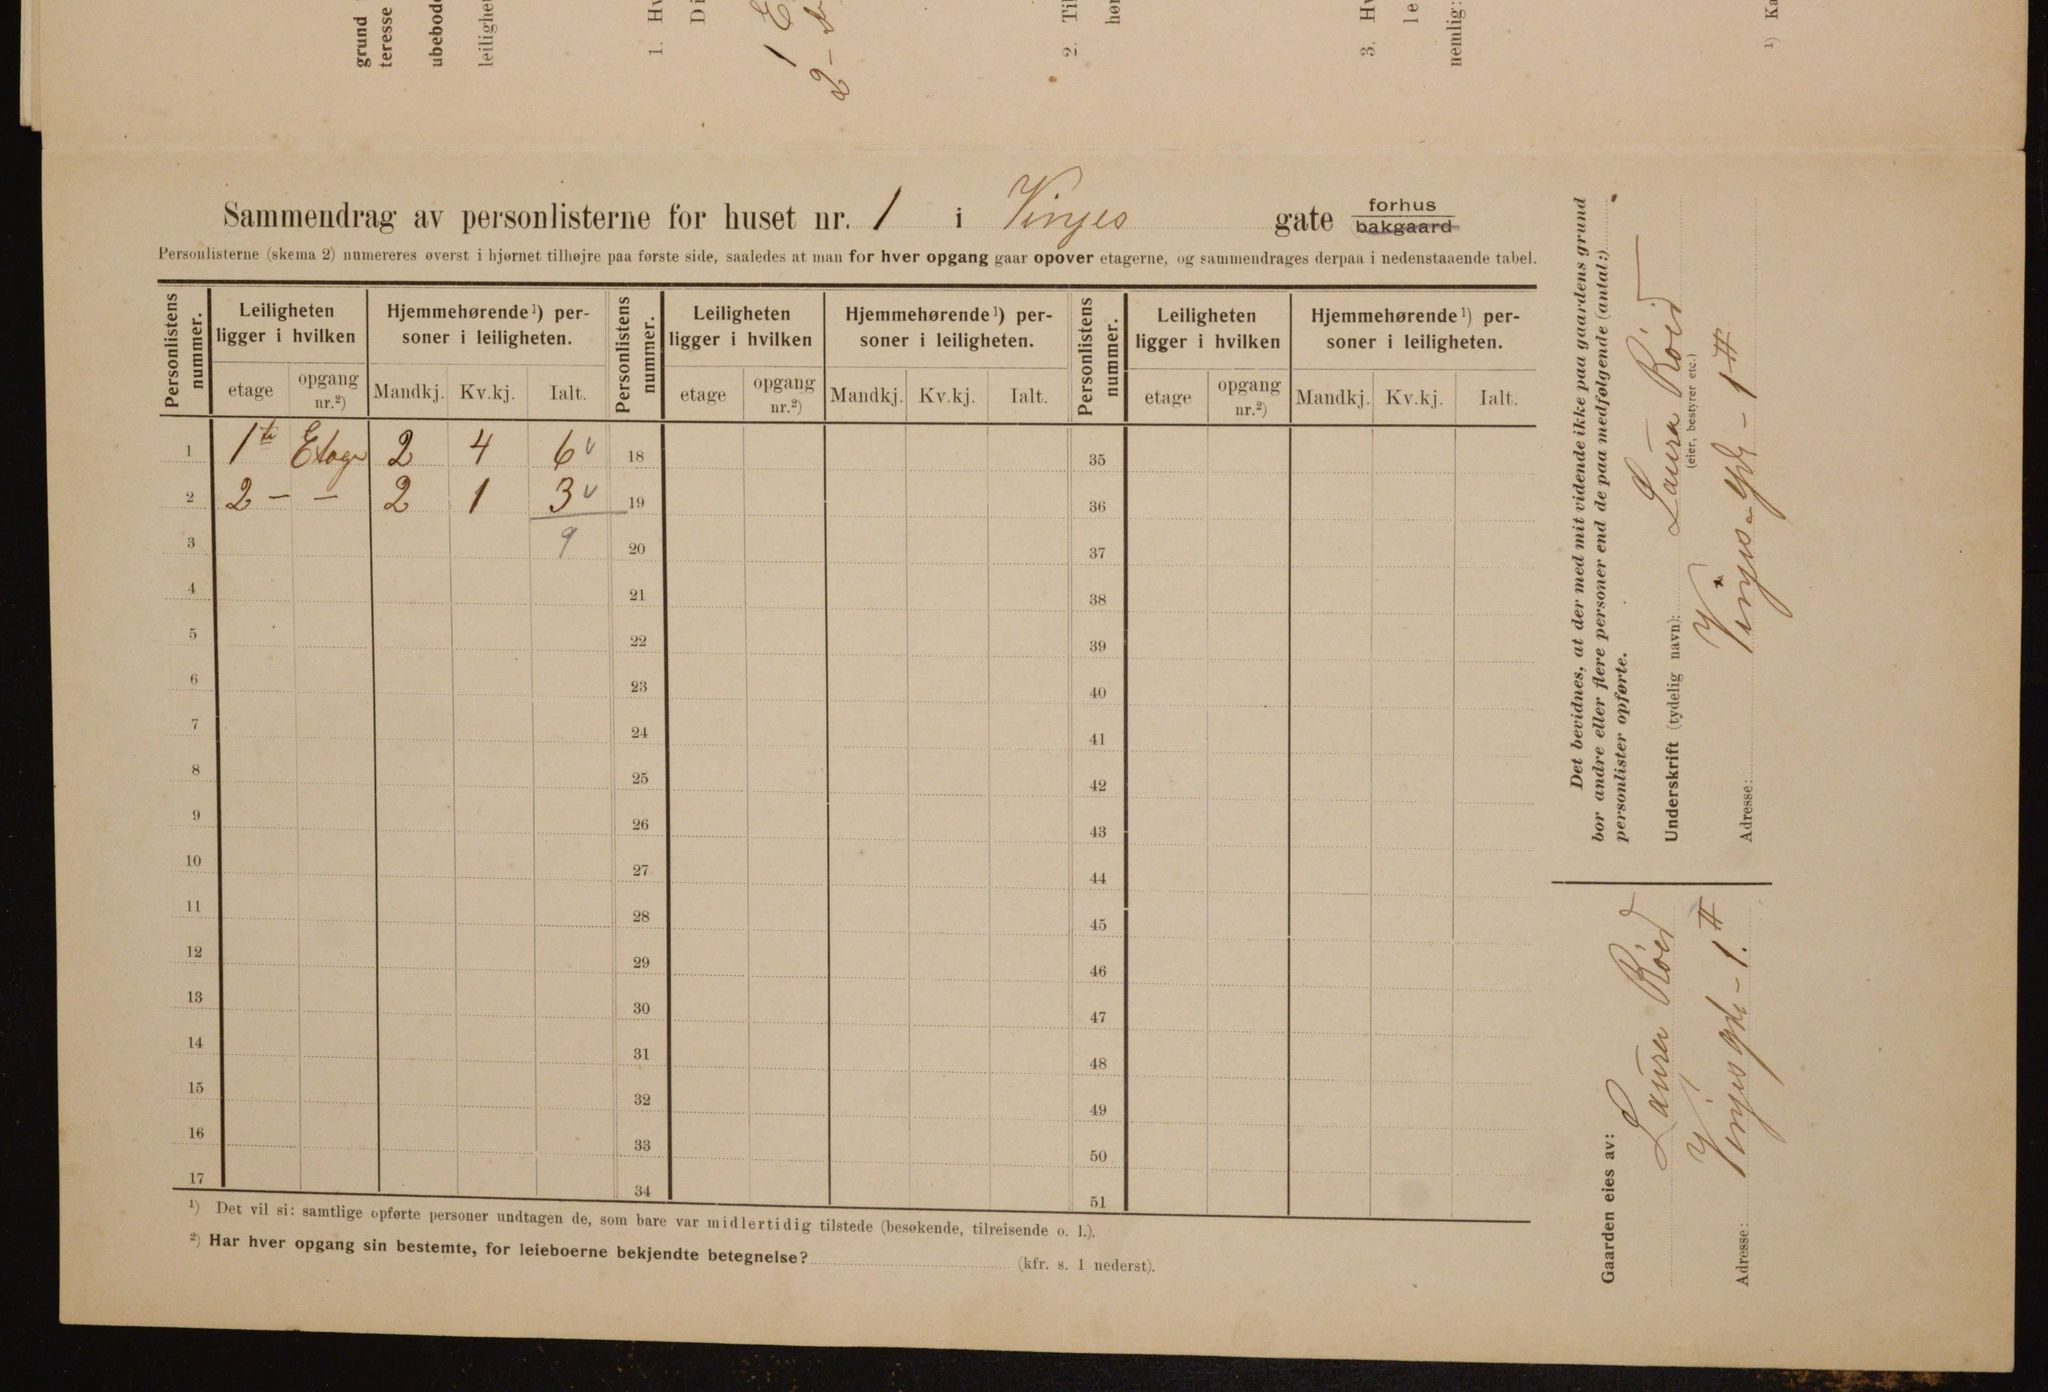 grund
teresse
ubebode
leilighet
1. Hv
Di
1 E
2 -
2. Til
høn
3. Hv
le
nemlig:
¹) Ka
Sammendrag av personlisterne for huset nr. 1 i Vinjes gate forhus
bakgaard
Personlisterne (skema 2) numereres øverst i hjørnet tilhøjre paa første side, saaledes at man for hver opgang gaar opover etagerne, og sammendrages derpaa i nedenstaaende tabel.
Personlistens nummer. Leiligheten ligger i hvilken Hjemmehørende¹) personer i leiligheten. Personlistens nummer. Leiligheten ligger i hvilken Hjemmehørende¹) personer i leiligheten. Personlistens nummer. Leiligheten ligger i hvilken Hjemmehørende¹) personer i leiligheten.
etage opgang nr.²) Mandkj. Kv.kj. Ialt. etage opgang nr.²) Mandkj. Kv.kj. Ialt. etage opgang nr.²) Mandkj. Kv.kj. Ialt.
1 1te Etage 2 4 6 18 35
2 2 – – 2 1 3 19 36
3 9 20 37
4 21 38
5 22 39
6 23 40
7 24 41
8 25 42
9 26 43
10 27 44
11 28 45
12 29 46
13 30 47
14 31 48
15 32 49
16 33 50
17 34 51
¹) Det vil si: samtlige opførte personer undtagen de, som bare var midlertidig tilstede (besøkende, tilreisende o. l.).
²) Har hver opgang sin bestemte, for leieboerne bekjendte betegnelse? (kfr. s. 1 nederst).
Det bevidnes, at der med mit vidende ikke paa gaardens grund
bor andre eller flere personer end de paa medfølgende (antal:)
personlister opførte.
Underskrift (tydelig navn): Laura Röed
(eier, bestyrer etc.)
Adresse: Vinjes-gd - 1 II
Gaarden eies av:
Laura Röed
Adresse: Vinjes gd - 1. II